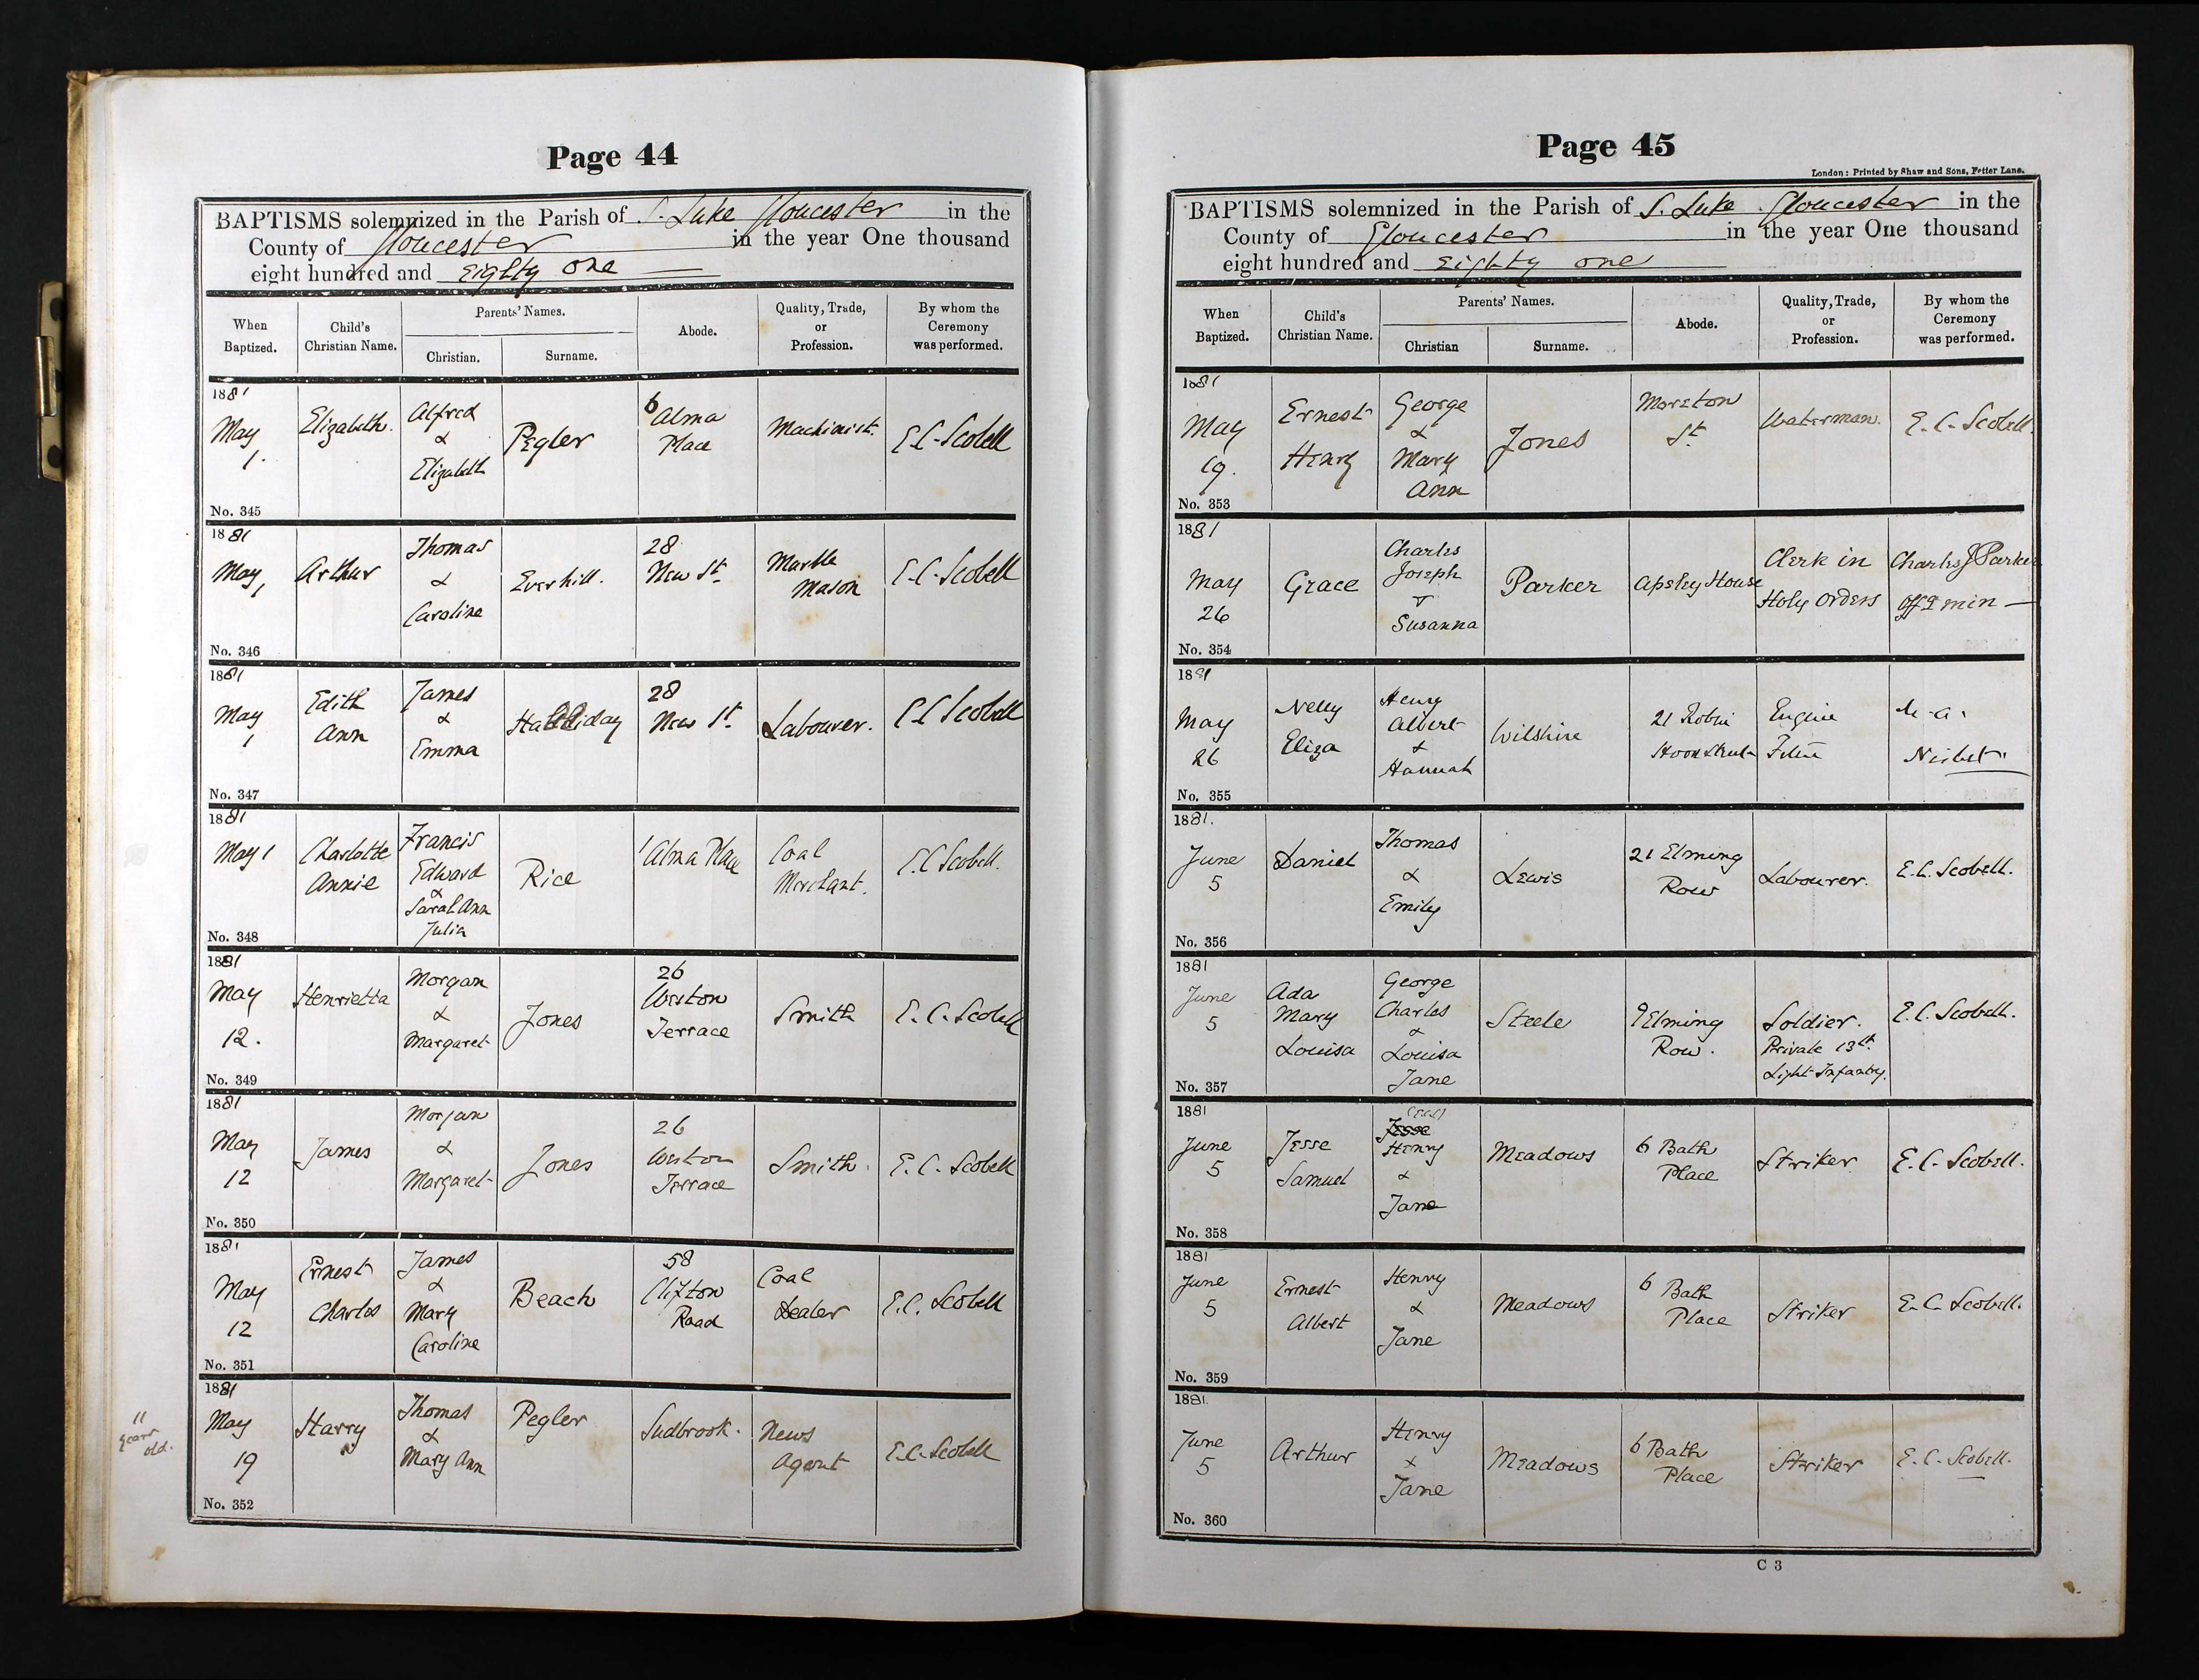 Page 44
BAPTISMS solemnized in the Parish of S. Luke Gloucester in the
County of Gloucester in the year One thousand
eight hundred and eighty one
When Baptized. Child's Christian Name. Parents' Names. Christian. Surname. Abode. Quality, Trade, or Profession. By whom the Ceremony was performed.
1881
May 1. Elizabeth. Alfred & Elizabeth Pegler 6 Alma Place Machinist. E.C. Scobell
No. 345
1881
May 1 Arthur Thomas & Caroline Everhill. 28 New St. Marble Mason E.C. Scobell
No. 346
1881
May 1 Edith Ann James & Emma Halliday 28 New St. Labourer. E C Scobell
No. 347
1881
May 1 Charlotte Annie Francis Edward & Sarah Ann Julia Rice 1 Alma Place Coal Merchant. E.C Scobell.
No. 348
1881
May 12. Henrietta Morgan & Margaret Jones 26 Weston Terrace Smith E. C. Scobell
No. 349
1881
May 12 James Morgan & Margaret Jones 26 Weston Terrace Smith. E. C. Scobell
No. 350
1881
May 12 Ernest Charles James & Mary Caroline Beach 58 Clifton Road Coal Dealer E.C. Scobell
No. 351
11 years old.
1881
May 19 Harry Thomas & Mary Ann Pegler Sudbrook. News Agent E.C. Scobell
No. 352
Page 45
London: Printed by Shaw and Sons, Fetter Lane.
BAPTISMS solemnized in the Parish of S. Luke Gloucester in the
County of Gloucester in the year One thousand
eight hundred and eighty one
When Baptized. Child's Christian Name. Parents' Names. Christian Surname. Abode. Quality, Trade, or Profession. By whom the Ceremony was performed.
1881
May 19. Ernest Henry George & Mary Ann Jones Moreton St. Waterman. E. C. Scobell.
No. 353
1881
May 26 Grace Charles Joseph & Susanna Parker Apsley House Clerk in Holy Orders Charles J Parker Offg min
No. 354
1881
May 26 Nelly Eliza Henry Albert & Hannah Wilshire 21 Robin Hood Street Engine Fitter Nisbet
No. 355
1881.
June 5 Daniel Thomas & Emily Lewis 21 Elming Row Labourer. E.C. Scobell.
No. 356
1881
June 5 Ada Mary Louisa George Charles & Louisa Jane Steele 9 Elming Row. Soldier. Private 13th Light Infantry. E.C. Scobell.
No. 357
1881
June 5 Jesse Samuel Jesse Henry & Jane Meadows 6 Bath Place Striker E. C. Scobell.
No. 358
1881
June 5 Ernest Albert Henry & Jane Meadows 6 Bath Place Striker E. C. Scobell.
No. 359
1881.
June 5 Arthur Henry & Jane Meadows 6 Bath Place Striker E. C. Scobell.
No. 360
C 3